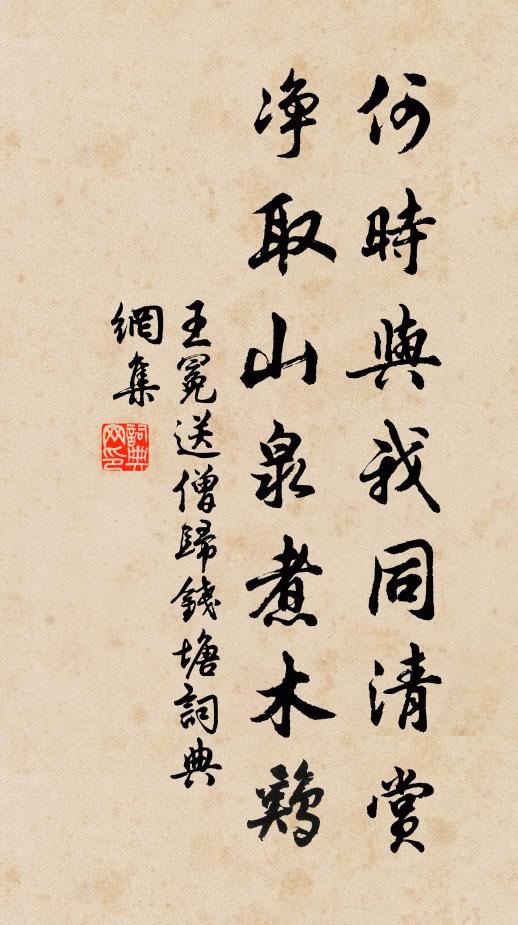 何時與我同清賞
净取山泉煮木鷄
王冕送僧歸錢塘詞典
網集
詞典
网印